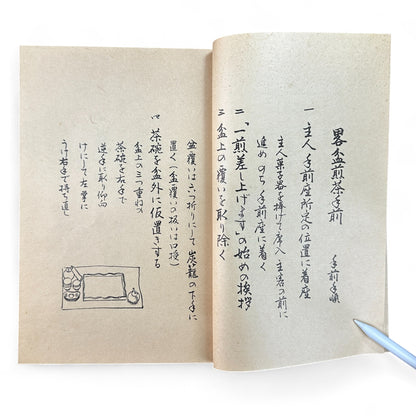 畧盆煎茶手前
手前手順
一 主人 手前座所定の位置に着座
主人菓子器を捧げて席入 主客の前に
進め のち手前座に着く
二、「一煎差し上げます」の始めの挨拶
三 盆上の覆いを取り除く
盆覆いは六つ折りにして炭籠の下手に
置く(盆覆いの扱いは口授)
茶碗を盆外に仮置きする
盆上の三重ねの
茶碗を右手で
逆手に取り仰向
けにして左掌に
うけ右手で持ち直し